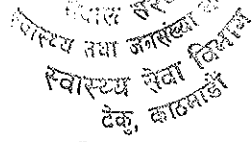 स्वास्थ्य तथा जनसंख्या
स्वास्थ्य सेवा विभाग
टेकु, काठमाडौं